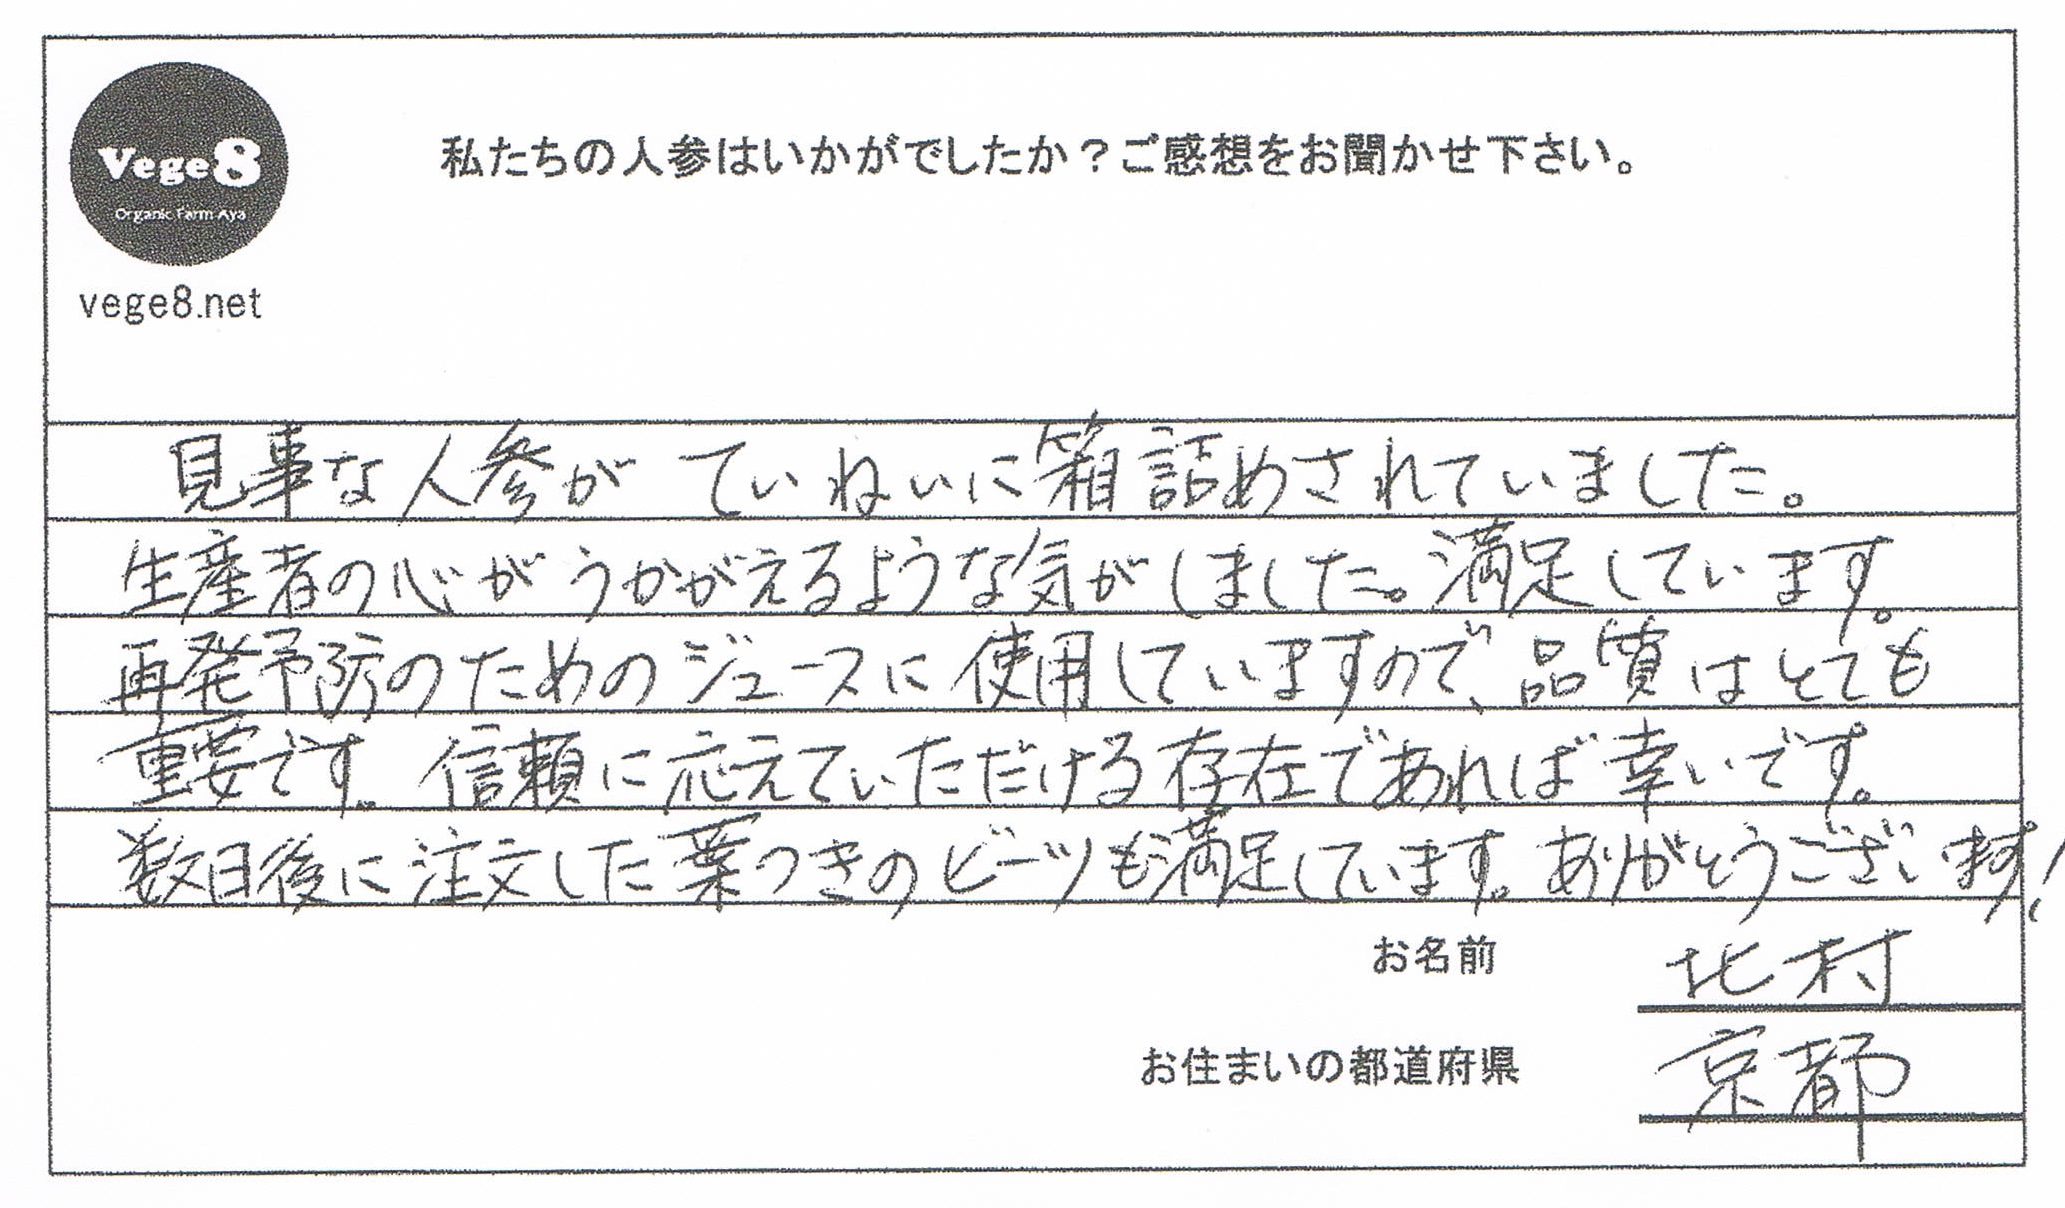 Vege8
Organic Farm Aya
vege8.net
私たちの人参はいかがでしたか？ご感想をお聞かせ下さい。
見事な人参が ていねいに箱詰めされていました。
生産者の心がうかがえるような気がしました。満足しています。
再発予防のためのジュースに使用していますので、品質はとても
重要です。信頼に応えていただける存在であれば幸いです。
数日後に注文した葉つきのビーツも満足しています。ありがとうございます！
お名前 北村
お住まいの都道府県 京都